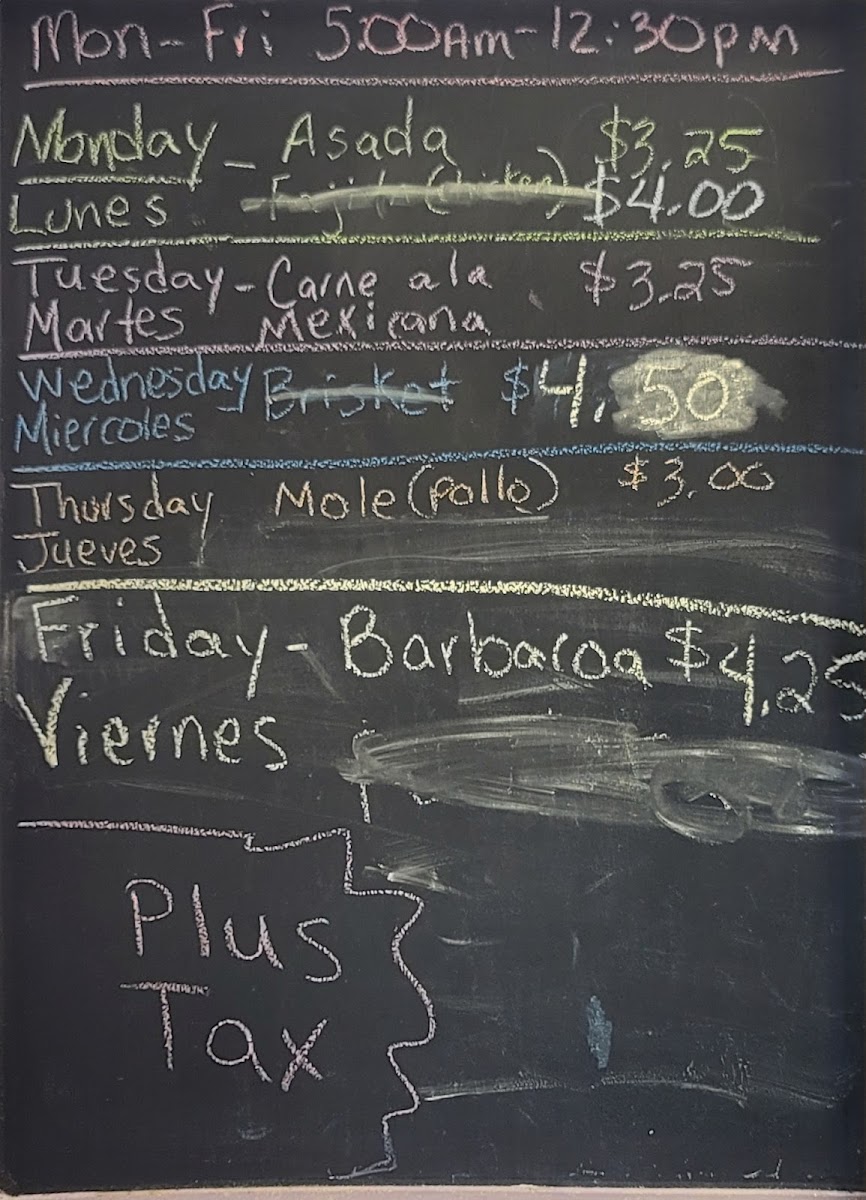 Mon-Fri 5:00Am-12:30pm
Monday - Asada $3.25
Lunes Fajita (chicken) $4.00
Tuesday - Carne a la $3.25
Martes Mexicana
Wednesday Brisket $4.50
Miercoles
Thursday Mole (pollo) $3.00
Jueves
Friday - Barbacoa $4.25
Viernes
Plus
Tax